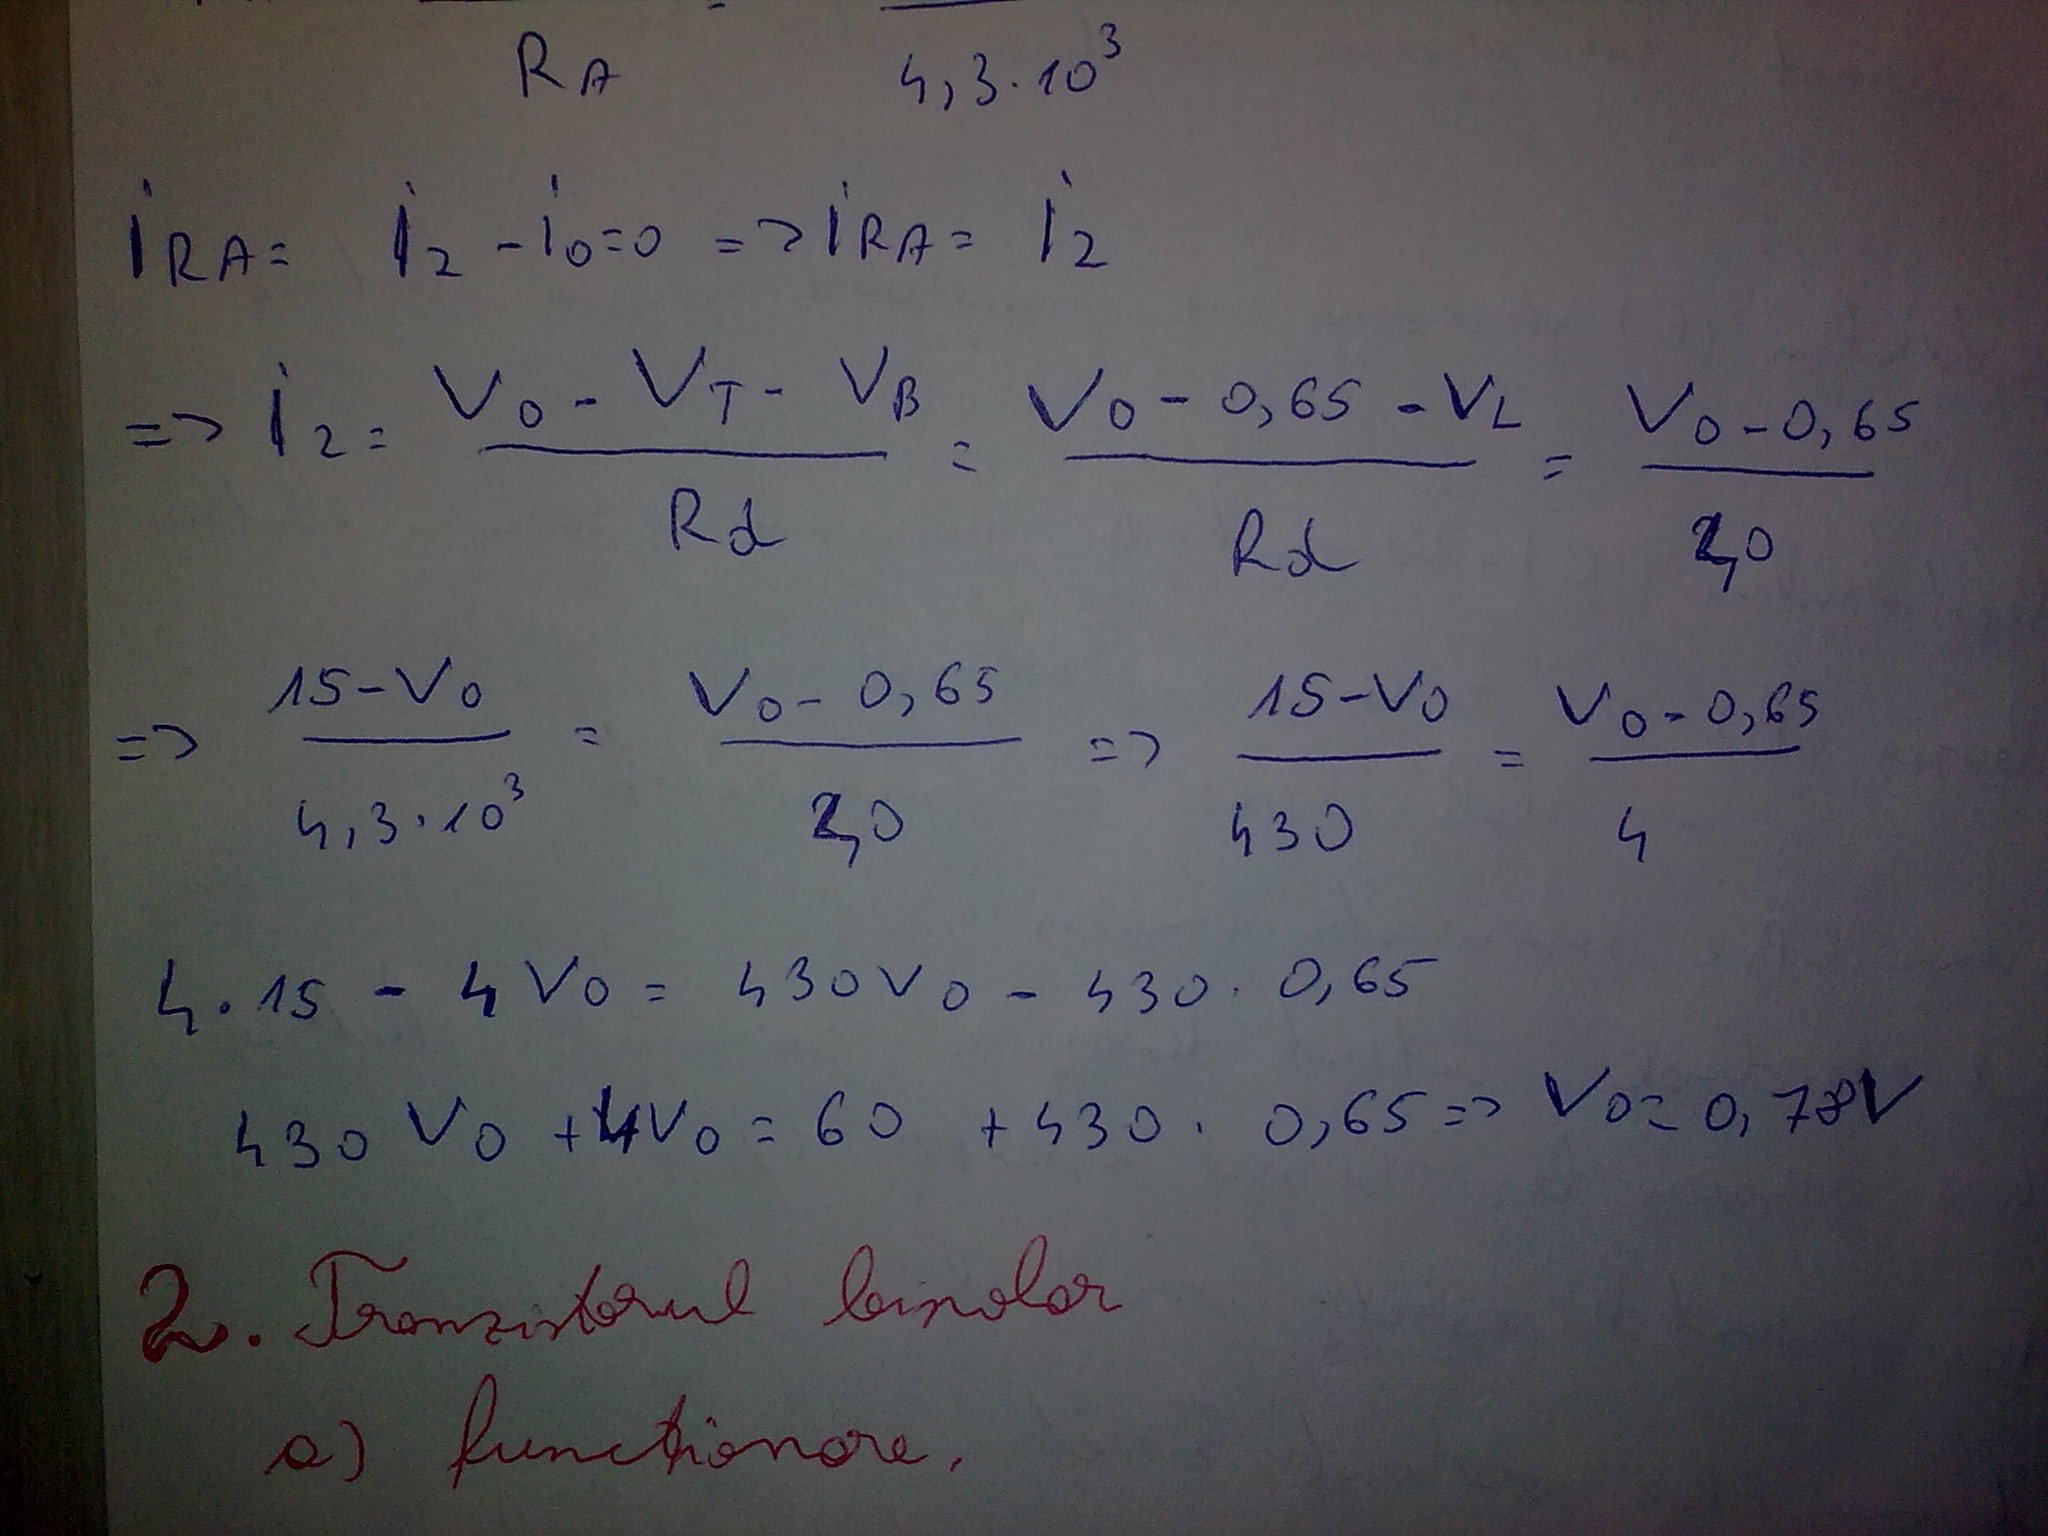 R_A = 4,3·10³
i_RA = i_2 - i_0=0 => i_RA = i_2
=> i_2 = (V_0 - V_T - V_B)/Rd = (V_0 - 0,65 - V_L)/Rd = (V_0 - 0,65)/40
=> (15 - V_0)/(4,3·10³) = (V_0 - 0,65)/40 => (15 - V_0)/430 = (V_0 - 0,65)/4
4·15 - 4V_0 = 430V_0 - 430·0,65
430V_0 + 4V_0 = 60 + 430·0,65 => V_0 = 0,78V
2. Tranzistorul bipolar
a) funcționare.